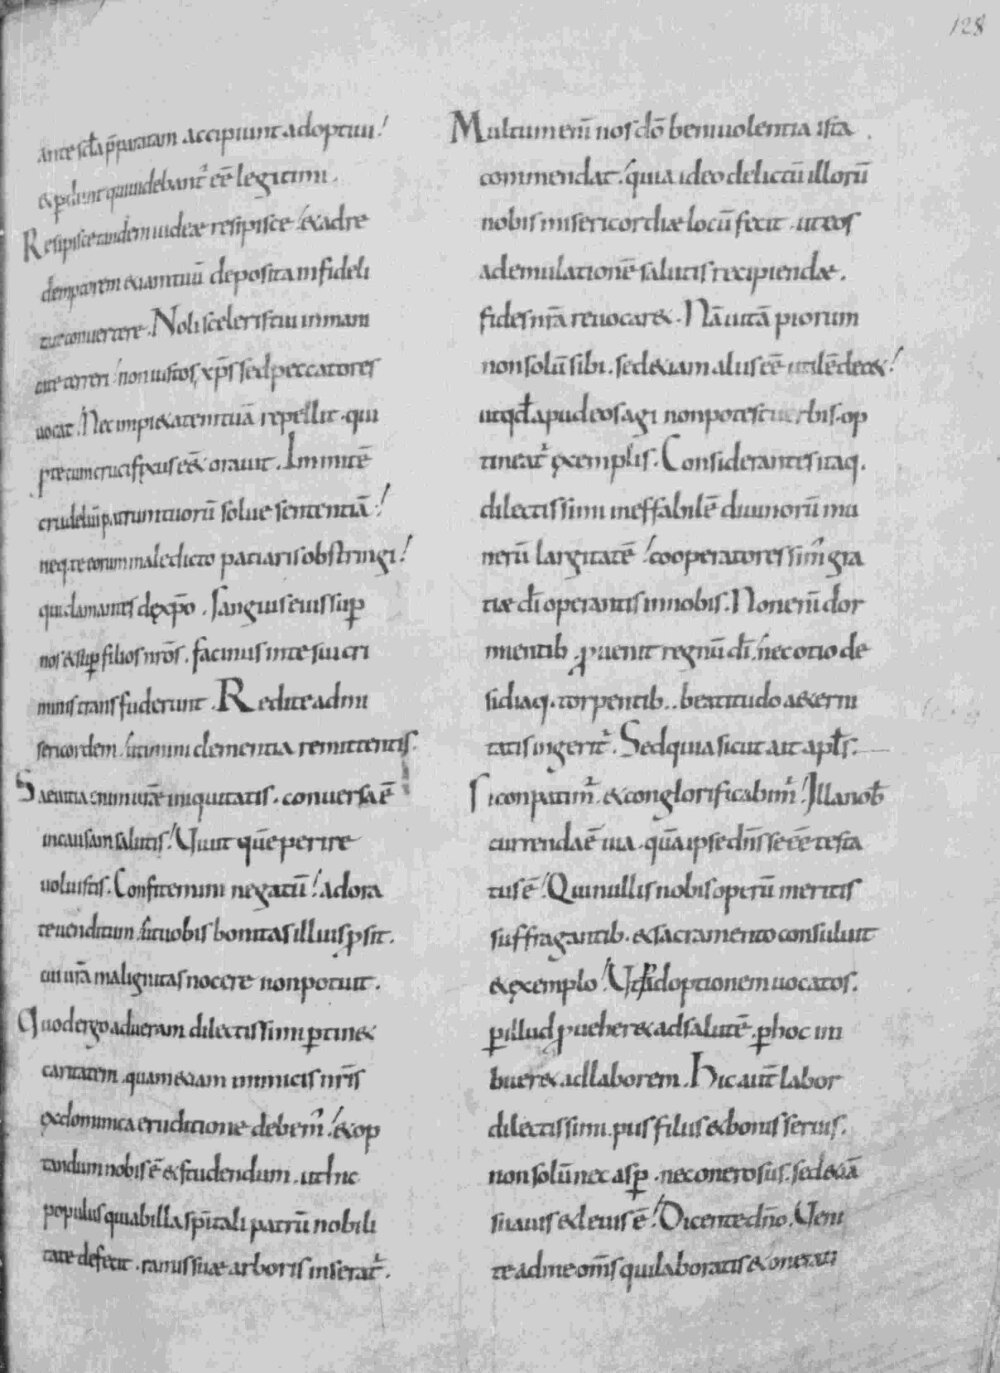 128
ante scła p̄paratam accipiunt adoptiui!
& pdunt qui uidebant᷒ eē legitimi.
Resipisce tandem iudeae resipisce! & adre
demptorem &iam tuū deposita infideli
tate conuertere. Noli sceleris tui inmani
tate terreri! non iustos xp̄s sed peccatores
uocat. Nec impi&atem tuā repellit. qui
p te cum crucifixus eēt orauit. Inmitē
crudeliū patrum tuorū solue sententiā!
neq. te eorum maledicto patiaris obstringi!
qui clamantes de xp̄o. Sanguis eius sup
nos & sup filios nrōs. facinus in te sui cri
minis transfuderunt. Redite ad mi
sericordem! utimini clementia remittentis.
Saeuitia enim urāe iniquitatis. conuersa ē
in causam salutis! Uiuit quē perire
uoluistis. Confitemini negatū! adora
te uenditum! ut uobis bonitas illius psit.
cui urā malignitas nocere non potuit.
Quod ergo ad ueram dilectissimi ptin&
caritatem. quam &iam inimicis nr̄is
ex dominica eruditione debem᷒! & op
tandum nobis ē & studendum. ut hic
populus qui ab illa sp̄itali patrū nobili
tate defecit. ramis suae arboris inserat᷒.
Multum eni̅ nos dō beniuolentia ista
commendat! quia ideo delictū illorū
nobis misericordiae locū fecit. ut eos
ad emulationē salutis recipiendae.
fides nrā reuocar&. Nā uitā piorum
non solū sibi. sed &iam aliis eē utilē dec&!
ut qđ apud eos agi non potest uerbis. op
tineat᷒ exemplis. Considerantes itaq.
dilectissimi ineffabilē diuinorū mu
nerū largitatē! cooperatores sim᷒ gra
tiae dī operantis in nobis. Non enī dor
mientib puenit regnū dī! nec otio de
sidiaq. torpentib.. beatitudo aeterni
tatis ingerit᷒. Sed quia sicut ait apłs.
Si conpatim᷒. & conglorificabim᷒! Illa nob̄
currenda ē uia. quā ipse dn̄s se eē testa
tus ē! Qui nullis nobis operū meritis
suffragantib. & sacramento consuluit
& exemplo! Ut in adoptionem uocatos.
p illud pueher& ad salutē. p hoc im
buer& ad laborem. Hic aut̄ labor
dilectissimi. piis filiis & bonis seruis.
non solū nec asp. nec onerosus. sed &iā
suauis & leuis ē! Dicente dn̄o. Ueni
te ad me om̄s qui laboratis & onerati